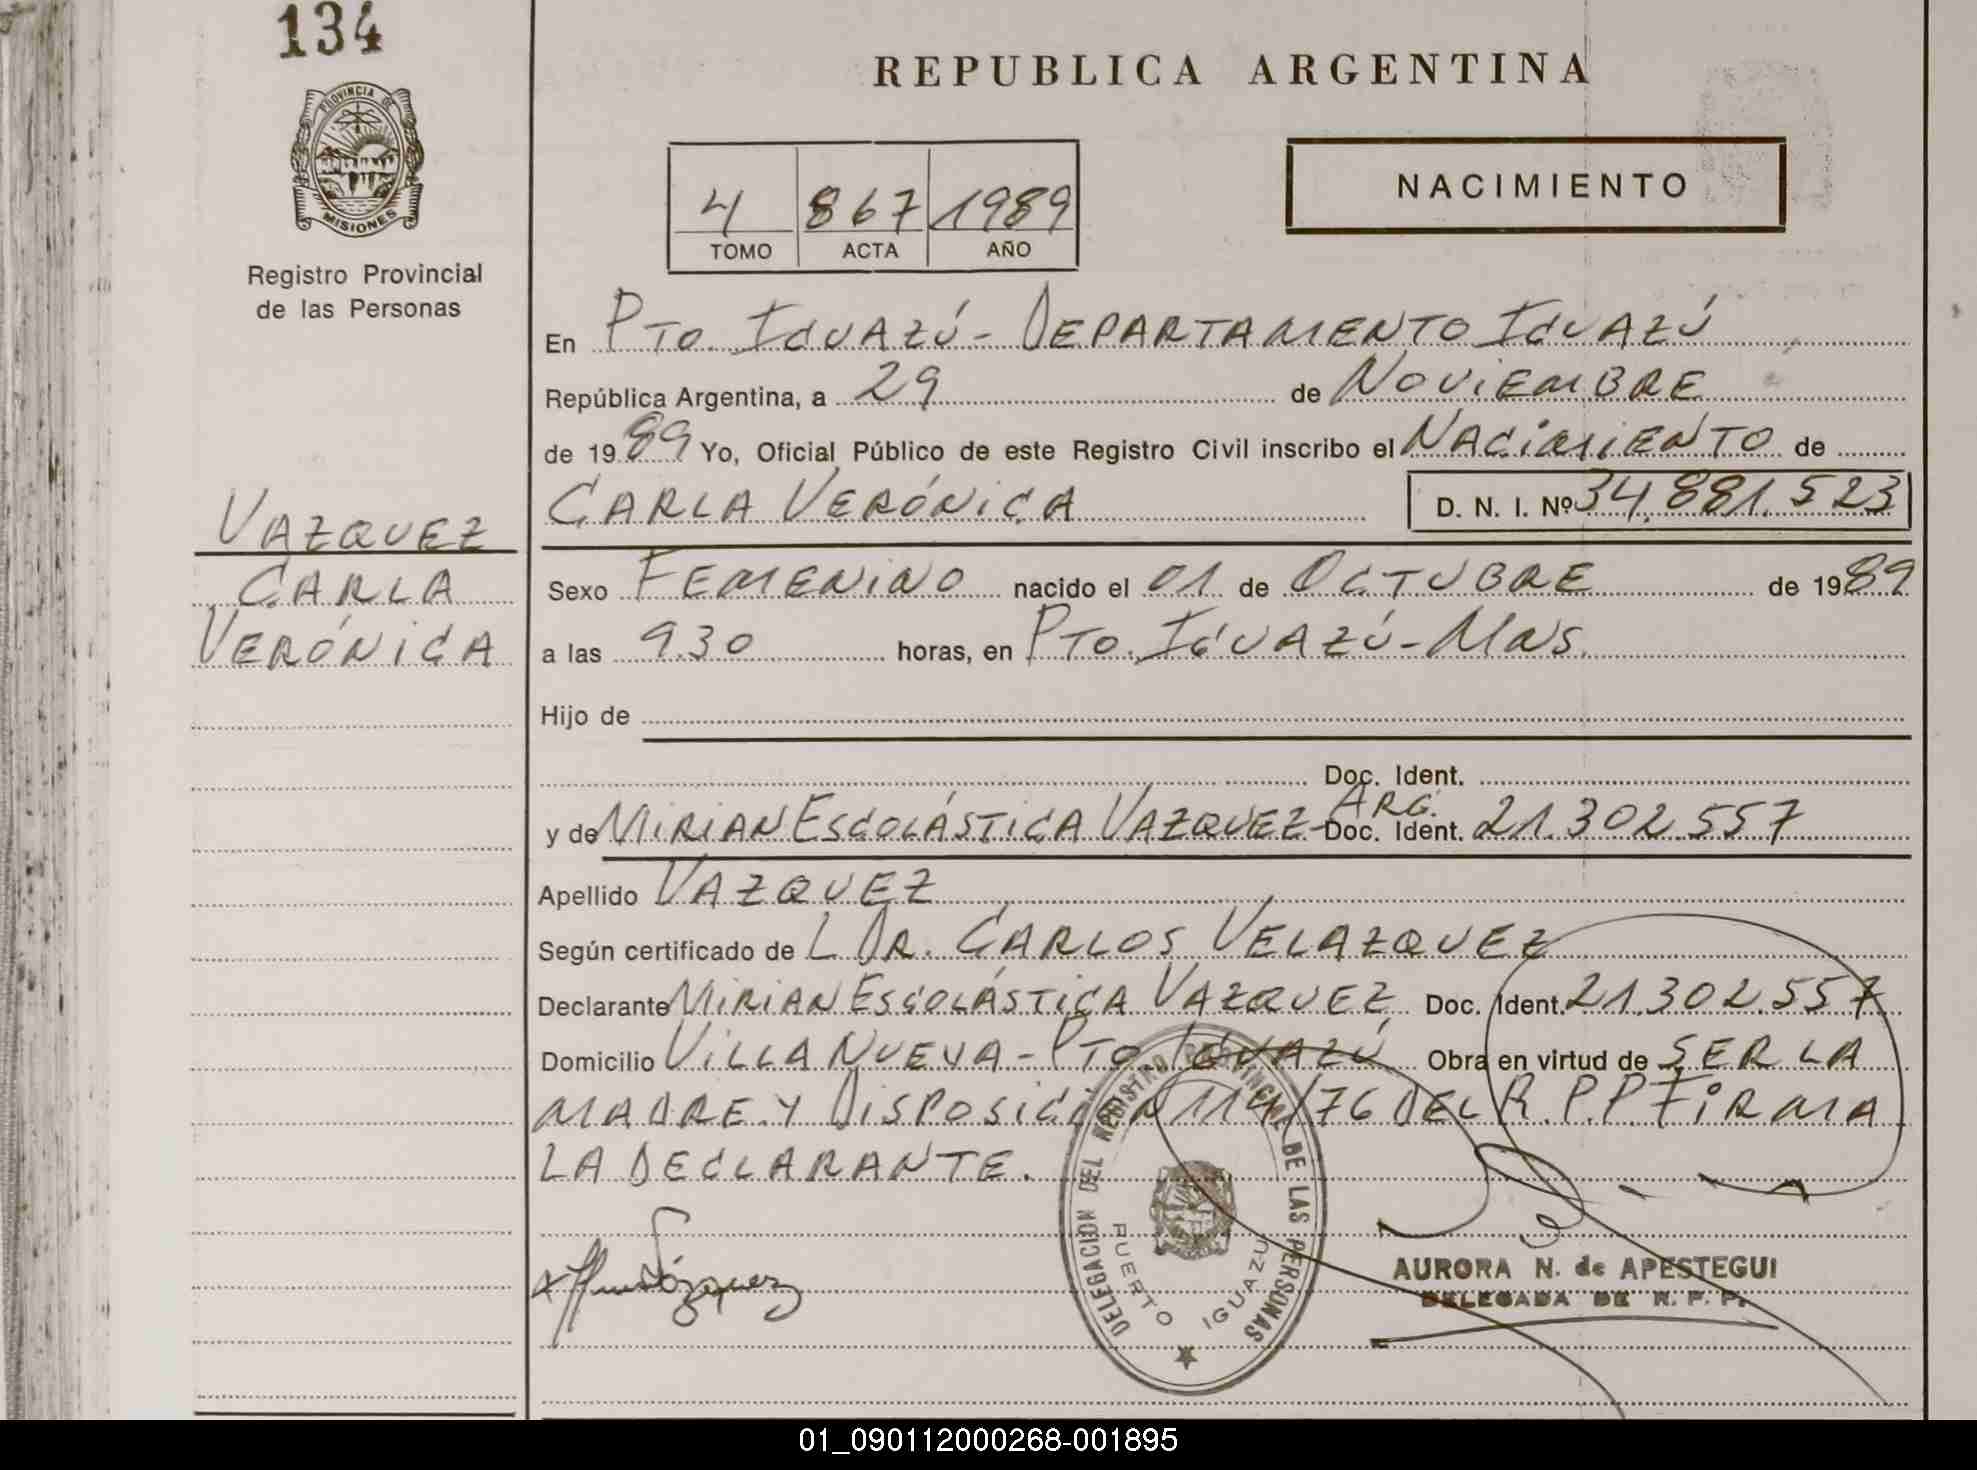 134
REPUBLICA ARGENTINA
PROVINCIA DE
MISIONES
Registro Provincial
de las Personas
4 867 1989
TOMO ACTA AÑO
NACIMIENTO
En PTO. IGUAZÚ - DEPARTAMENTO IGUAZÚ
República Argentina, a 29 de NOVIEMBRE
de 1989 Yo, Oficial Público de este Registro Civil inscribo el NACIMIENTO de
CARLA VERÓNICA D. N. I. Nº 34.881.523
VAZQUEZ
CARLA
VERÓNICA
Sexo FEMENINO nacido el 01 de OCTUBRE de 1989
a las 9.30 horas, en PTO. IGUAZÚ - MNS.
Hijo de
Doc. Ident.
y de MIRIAN ESCOLÁSTICA VAZQUEZ - ARG. Doc. Ident. 21.302.557
Apellido VAZQUEZ
Según certificado de L DR. CARLOS VELAZQUEZ
Declarante MIRIAN ESCOLÁSTICA VAZQUEZ Doc. Ident. 21.302.557
Domicilio VILLA NUEVA - PTO IGUAZÚ Obra en virtud de SER LA
MADRE Y DISPOSICIÓN 114/76 DEL R.P.P. FIRMA
LA DECLARANTE.
DELEGACION DEL REGISTRO PROVINCIAL DE LAS PERSONAS
PUERTO IGUAZU
AURORA N. de APESTEGUI
DELEGADA DE R. P. P.
01_090112000268-001895